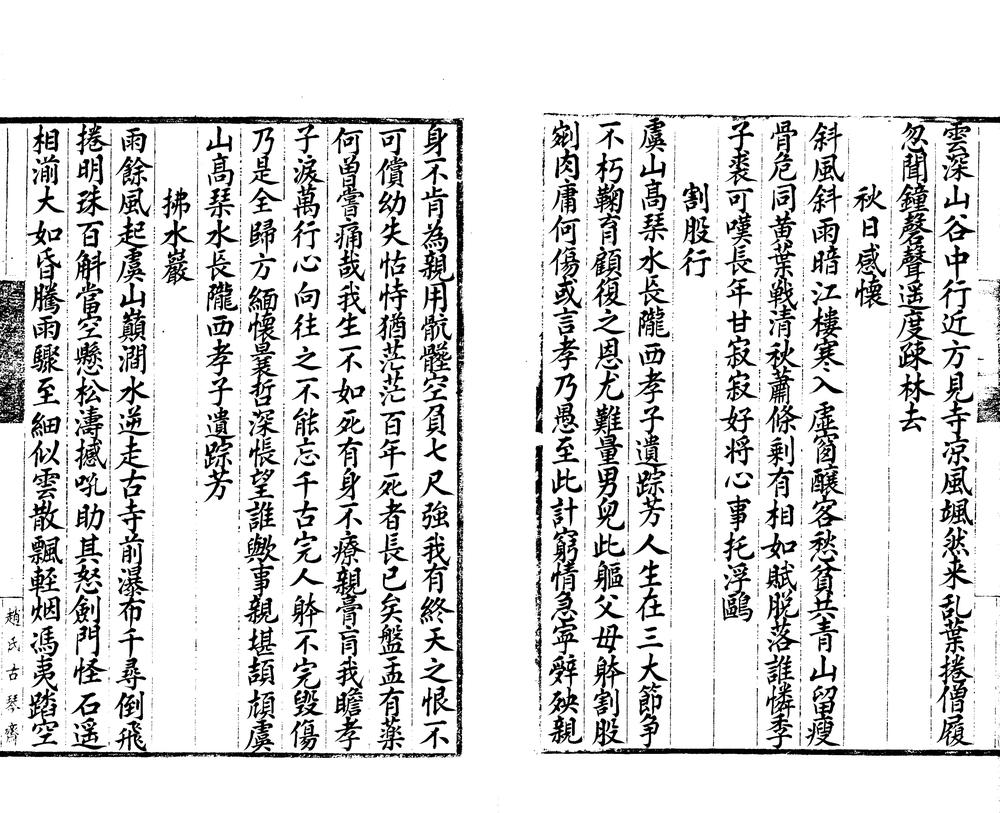 雲深山谷中行近方見寺凉風颯然来乱葉捲僧履
忽聞鐘磬聲遥度疎林去
秋日感懷
斜風斜雨暗江樓寒入虛窗釀客愁貧共青山留瘦
骨危同黄葉戰清秋蕭條剩有相如賦脱落誰憐季
子裘可嘆長年甘寂寂好將心事托浮鷗
割股行
虞山高琹水長隴西孝子遺踪芳人生在三大節争
不朽鞠育顧復之恩尤難量男兒此軀父母躰割股
剜肉庸何傷或言孝乃愚至此計窮情急寧辭殃親
身不肯為親用骯髒空負七尺強我有終天之恨不
可償幼失怙恃猶茫茫百年死者長已矣盤盂有藥
何曽嘗痛哉我生不如死有身不療親膏肓我瞻孝
子淚萬行心向往之不能忘千古完人躰不完毀傷
乃是全歸方緬懷曩哲深悵望誰歟事親堪頡頏虞
山高琹水長隴西孝子遺踪芳
拂水巖
雨餘風起虞山巔澗水逆走古寺前瀑布千尋倒飛
捲明珠百斛當空懸松濤撼吼助其怒劍門怪石遥
相湔大如昏騰雨驟至細似雲散飄輕烟馮夷蹈空
趙氏古琴齋